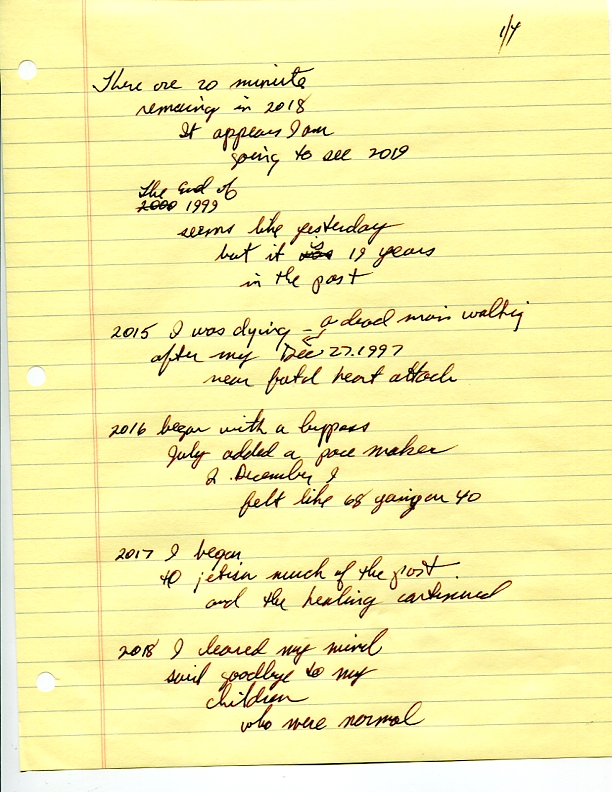 1/4
There are 20 minute
remaining in 2018
It appears I am
going to see 2019
The End of
2000 1999
seems like yesterday
but it was is 19 years
in the past
2015 I was dying - a dead man walking
after my Dec 27.1997
near fatal heart attack
2016 began with a bypass
July added a pace maker
2 December I
felt like 68 going on 40
2017 I began
to jetison much of the past
and the healing continued
2018 I cleared my mind
said goodbye to my
children
who were normal